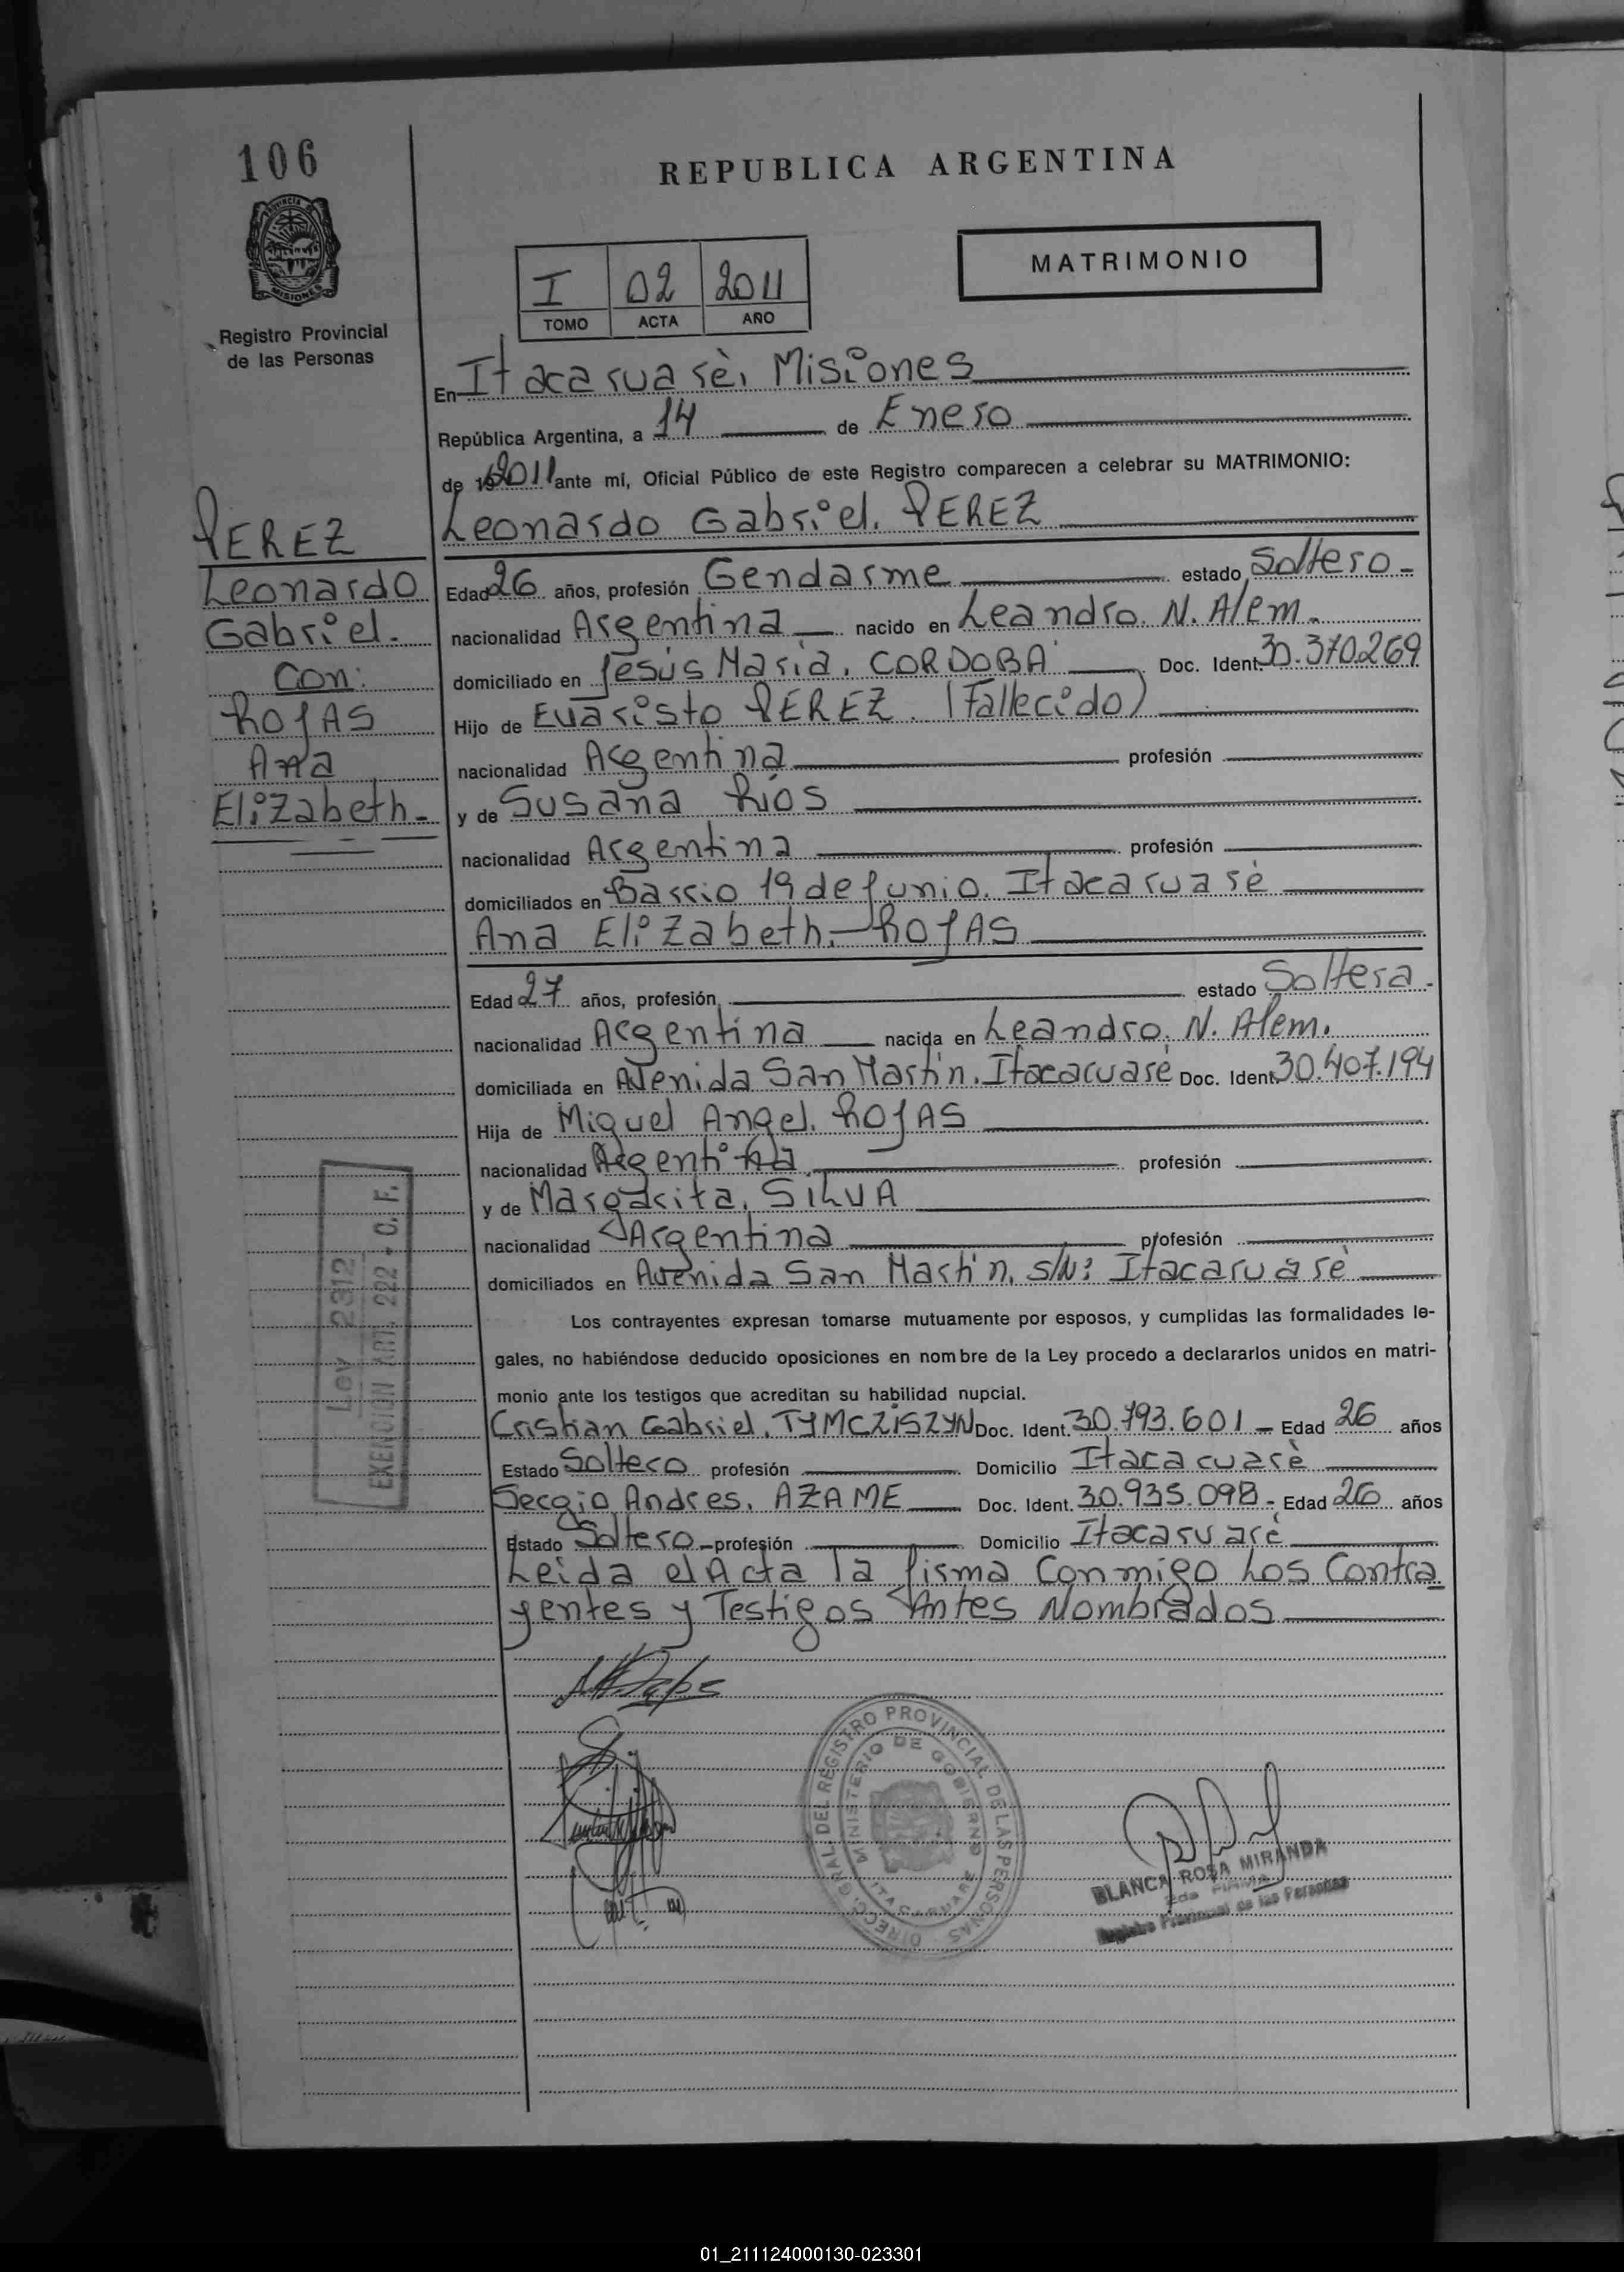 106
REPUBLICA ARGENTINA
PROVINCIA DE
MISIONES
Registro Provincial
de las Personas
I 02 2011
TOMO ACTA AÑO
MATRIMONIO
En Itacaruarè, Misiones
República Argentina, a 14 de Enero
de 2011 ante mí, Oficial Público de este Registro comparecen a celebrar su MATRIMONIO:
Leonardo Gabriel. PEREZ
PEREZ
Leonardo
Gabriel.
Con:
ROJAS
Ana
Elizabeth.
Edad 26 años, profesión Gendarme estado Soltero
nacionalidad Argentina nacido en Leandro. N. Alem.
domiciliado en Jesús María, CORDOBA Doc. Ident. 30.370.269
Hijo de Evaristo PEREZ. (Fallecido)
nacionalidad Argentina profesión
y de Susana Ríos
nacionalidad Argentina profesión
domiciliados en Barrio 19 de Junio. Itacaruarè
Ana Elizabeth.- ROJAS
Edad 27 años, profesión estado Soltera.
nacionalidad Argentina nacida en Leandro. N. Alem.
domiciliada en Avenida San Martín. Itacaruarè Doc. Ident. 30.407.194
Hija de Miguel Angel. ROJAS
nacionalidad Argentina profesión
y de Margarita. SILVA
nacionalidad Argentina profesión
domiciliados en Avenida San Martín, S/Nº Itacaruarè
Los contrayentes expresan tomarse mutuamente por esposos, y cumplidas las formalidades le-
gales, no habiéndose deducido oposiciones en nombre de la Ley procedo a declararlos unidos en matri-
monio ante los testigos que acreditan su habilidad nupcial.
Cristian Gabriel. TYMCZISZYN Doc. Ident. 30.793.601 - Edad 26 años
Estado Soltero profesión Domicilio Itacaruarè
Sergio Andres. AZAME Doc. Ident. 30.935.098 - Edad 26 años
Estado Soltero profesión Domicilio Itacaruarè
Leida el Acta la firma Conmigo Los Contra
yentes y Testigos Antes Nombrados
Ley 2312
EXENCION ART. 222 - C. F.
DIRECC. GRAL. DEL REGISTRO PROVINCIAL DE LAS PERSONAS
MINISTERIO DE GOBIERNO
ITACARUARE
BLANCA ROSA MIRANDA
2da FIRMA
Registro Provincial de las Personas
01_211124000130-023301